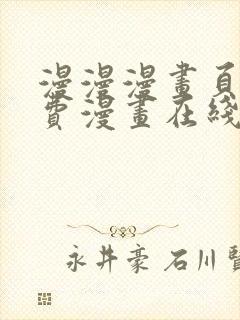 漫漫漫畫頁
費漫畫在綫
永井豪 石川賢